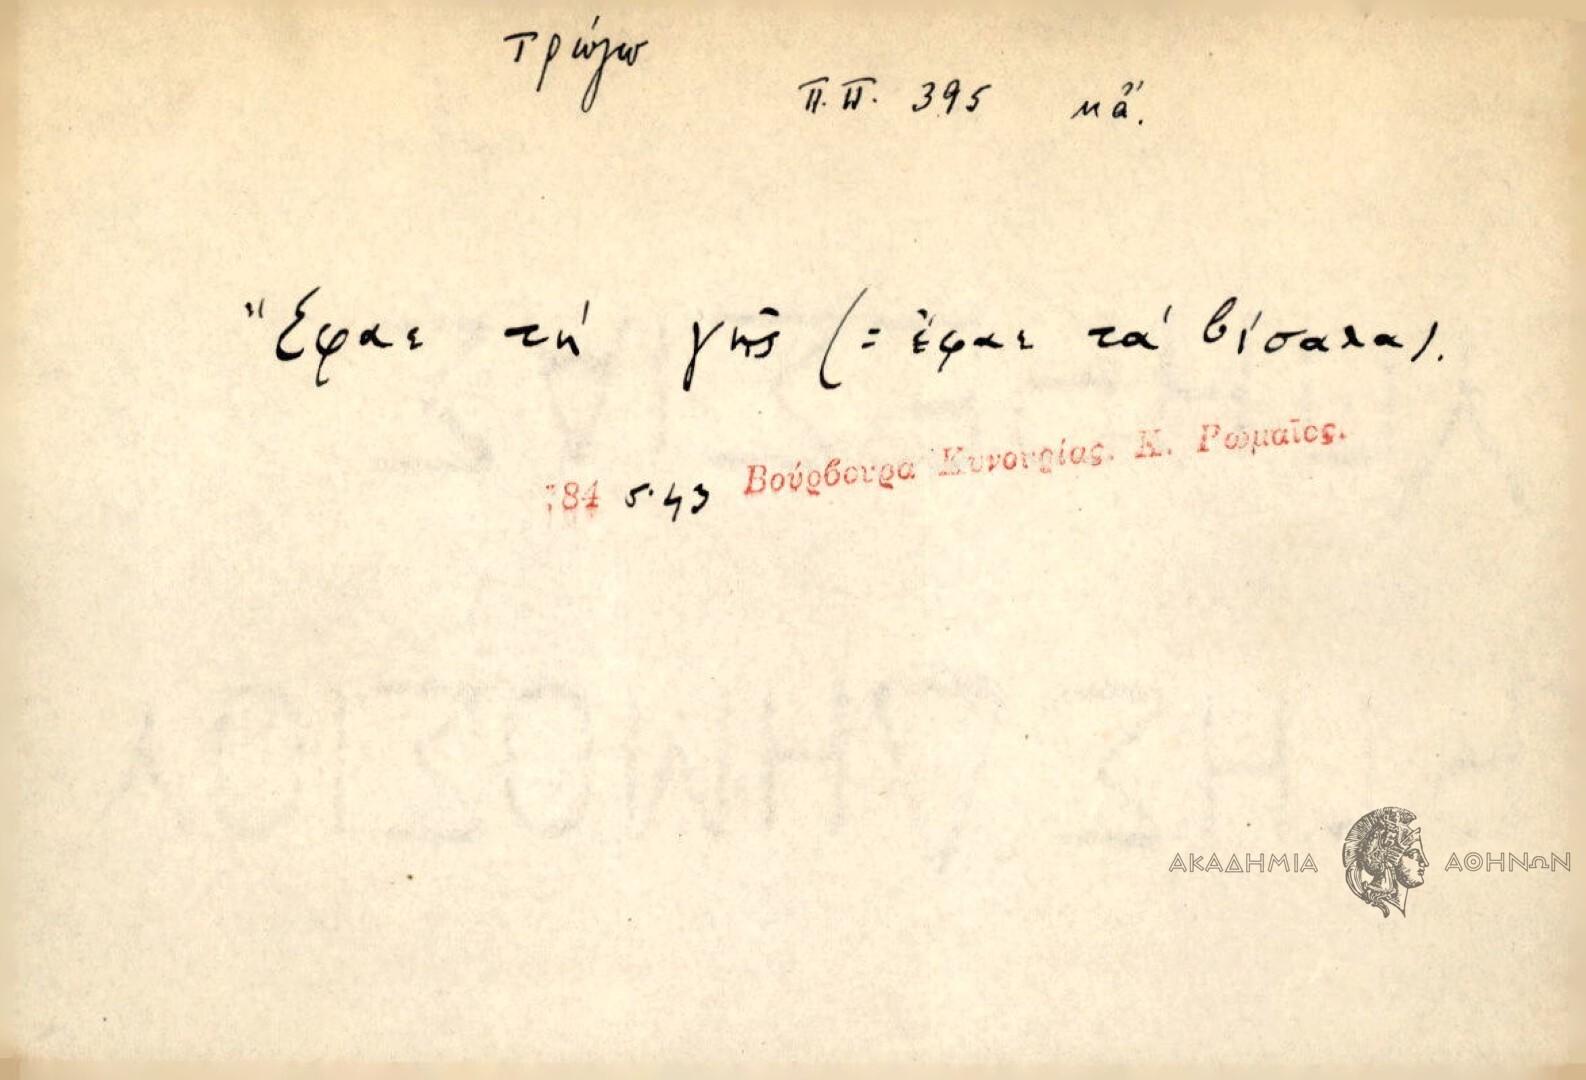 τρώγω
Π.Π. 395 κἄ.
Ἔφαε τὴ γῆς (= ἔφαε τὰ βίσαλα).
784 5.43 Βούρβουρα Κυνουρίας. Κ. Ρωμαῖος.
ΑΚΑΔΗΜΙΑ ΑΘΗΝΩΝ